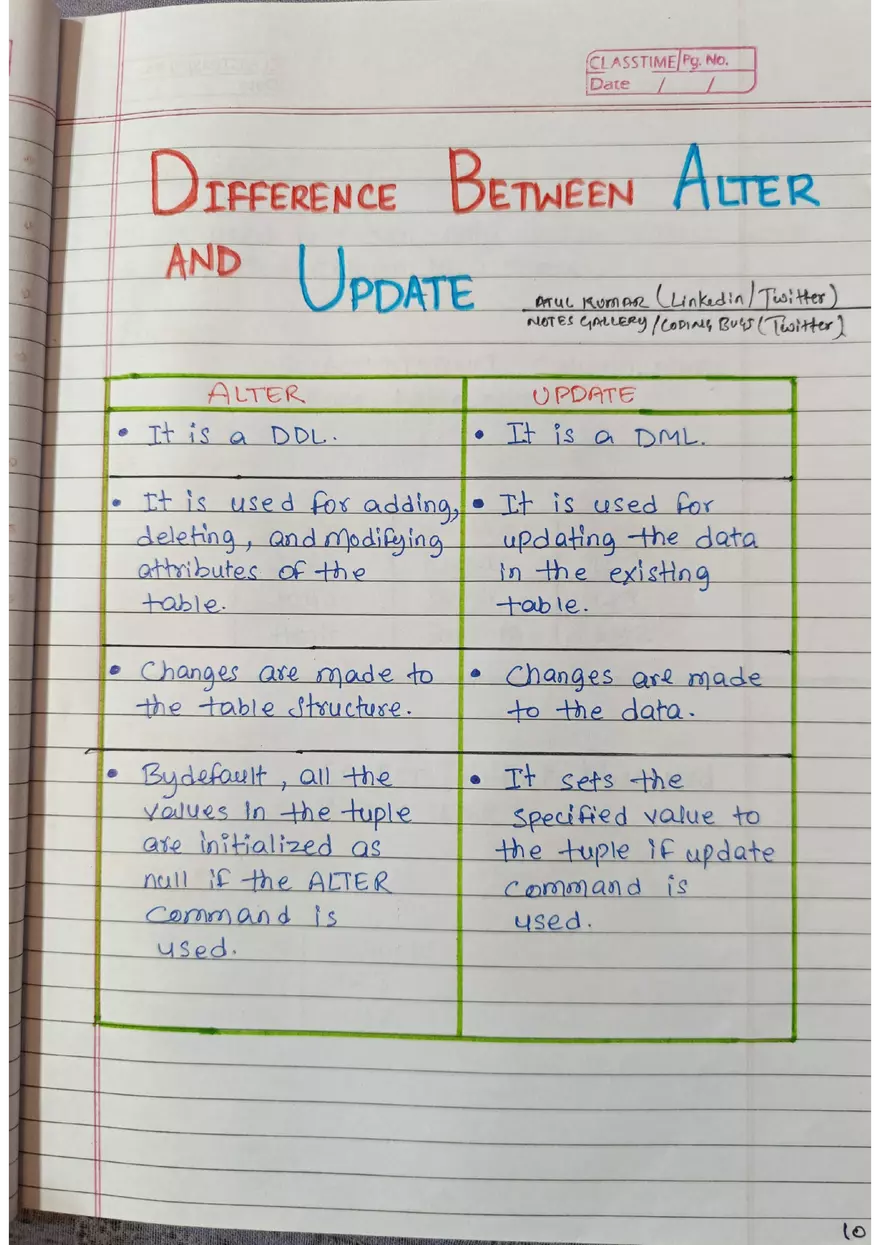 CLASSTIME Pg. No.
Date / /
DIFFERENCE BETWEEN ALTER
AND UPDATE
ATUL KUMAR (Linkedin/Twitter)
NOTES GALLERY/CODING BUGS (Twitter)
ALTER
UPDATE
• It is a DDL.
• It is a DML.
• It is used for adding,
deleting, and modifying
attributes of the
table.
• It is used for
updating the data
in the existing
table.
• Changes are made to
the table structure.
• Changes are made
to the data.
• Bydefault, all the
values in the tuple
are initialized as
null if the ALTER
Command is
used.
• It sets the
specified value to
the tuple if update
Command is
used.
10